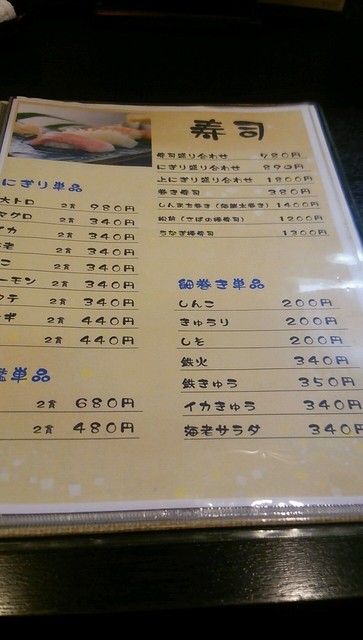 寿司
寿司盛り合わせ 780円
にぎり盛り合わせ 890円
上にぎり盛り合わせ 1800円
巻き寿司 380円
しんまち巻き 1400円
松前(さばの棒寿司) 1200円
うなぎ棒寿司 1300円
にぎり単品
大トロ 2貫 980円
マグロ 2貫 340円
イカ 2貫 340円
老 2貫 340円
こ 2貫 340円
ーモン 2貫 340円
タテ 2貫 340円
ギ 2貫 440円
2貫 440円
単品
2貫 680円
2貫 480円
細巻き単品
しんこ 200円
きゅうり 200円
しそ 200円
鉄火 340円
鉄きゅう 350円
イカきゅう 340円
海老サラダ 340円